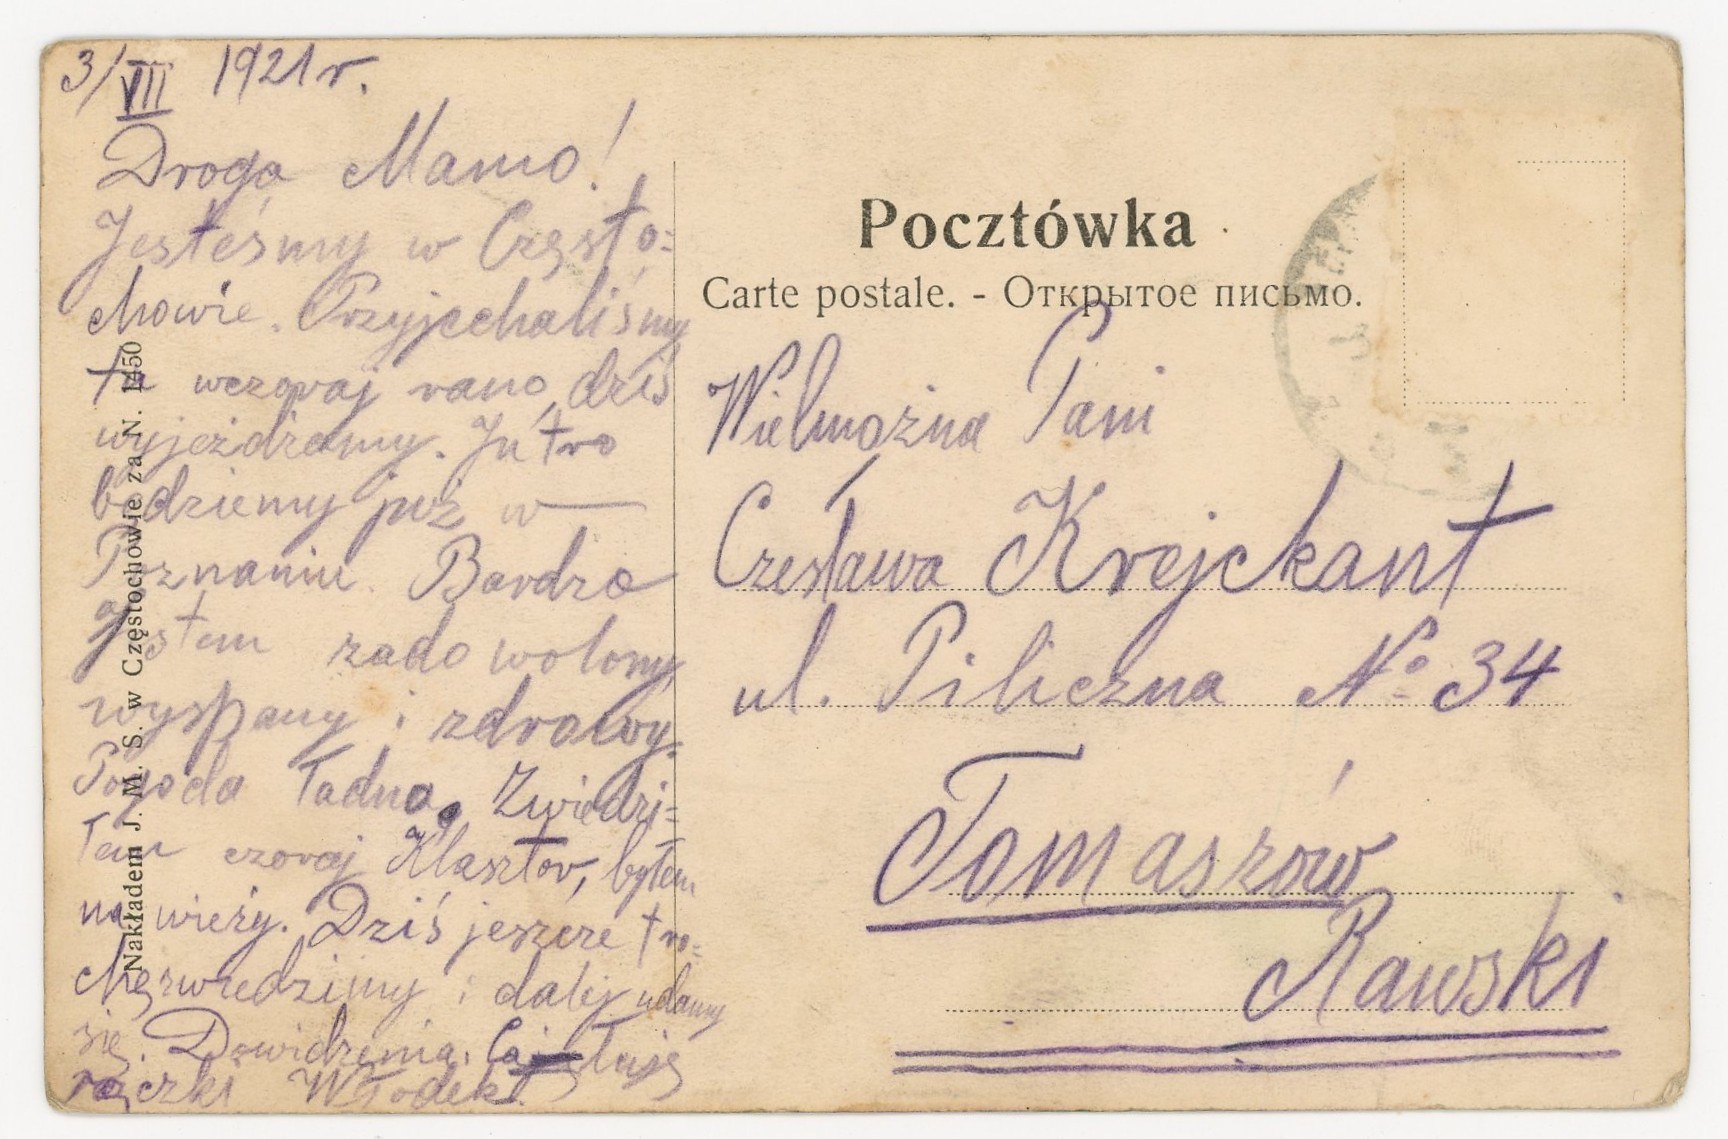 3/VII 1921 r.
Droga Mamo!
Jesteśmy w Często=
chowie. Przyjechaliśmy
tu wczoraj rano, dziś
wyjeżdżamy. Jutro
będziemy już w
Poznaniu. Bardzo
jestem zadowolony,
wyspany i zdrowy.
Pogoda ładna. Zwiedzi=
łem czoraj Klasztor, byłem
na wieży. Dziś jeszcze tro=
chę zwiedzimy i dalej udamy
się. Dowidzenia. Całuję
rączki Włodek.
Nakładem J. M. S. w Częstochowie za N. 1450
Pocztówka
Carte postale. - Открытое письмо.
Wielmożna Pani
Czesława Krejckant
ul. Piliczna № 34
Tomaszów
Rawski